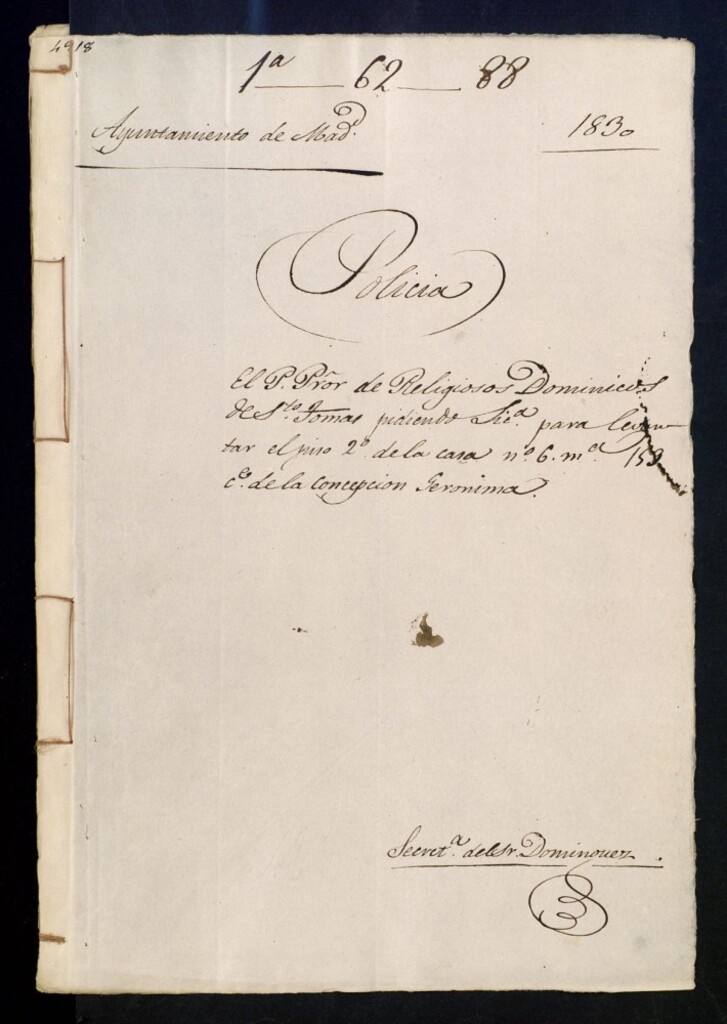 1ª 62 88
Ayuntamiento de Madd.
1830
Policia
El P. Prõr de Religiosos Dominicos
de Sto. Tomas pidiendo Lica. para levan
tar el piso 2º de la casa nº 6. mª. 159
ce. de la Concepcion Geronima.
Secretª. del Sr. Dominguez.